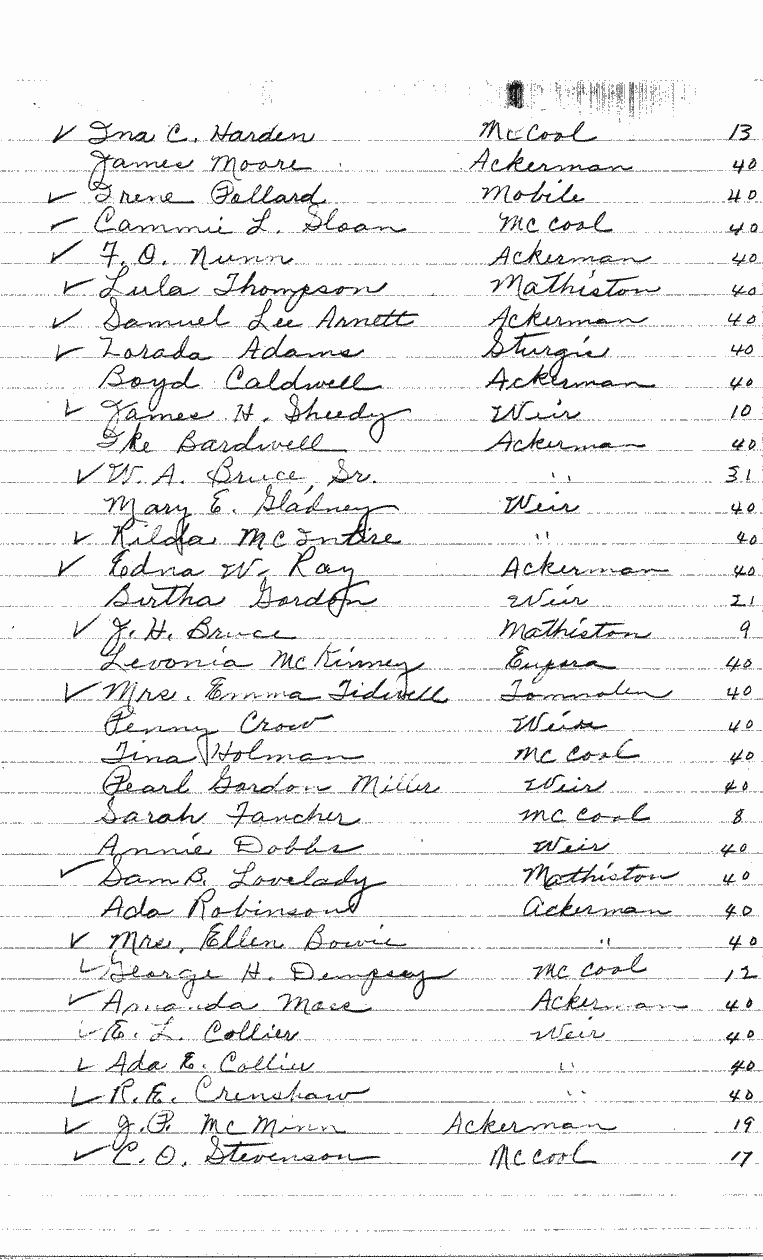 ✓ Ina C. Harden McCool 13
James Moore Ackerman 40
✓ Irene Pollard Mobile 40
✓ Cammie L. Sloan McCool 40
✓ F. O. Nunn Ackerman 40
✓ Lula Thompson Mathiston 40
✓ Samuel Lee Arnett Ackerman 40
✓ Zorada Adams Sturgis 40
Boyd Caldwell Ackerman 40
✓ James H. Sheedy Weir 10
Ike Bardwell Ackerman 40
✓ W. A. Bruce, Sr. " 31
Mary E. Gladney Weir 40
✓ Rilda McIntire " 40
✓ Edna W. Ray Ackerman 40
Birtha Gordon Weir 21
✓ J. H. Bruce Mathiston 9
Levonia McKinney Eupora 40
✓ Mrs. Emma Tidwell Tomnolen 40
Penny Crow Weir 40
Tina Holman McCool 40
Pearl Gordon Miller Weir 40
Sarah Fancher McCool 8
Annie Dobbs Weir 40
✓ Sam B. Lovelady Mathiston 40
Ada Robinson Ackerman 40
✓ Mrs. Ellen Bowie " 40
✓ George H. Dempsey McCool 12
✓ Amanda Moss Ackerman 40
✓ E. L. Collier Weir 40
✓ Ada E. Collier " 40
✓ R. E. Crenshaw " 40
✓ J. P. McMinn Ackerman 19
✓ C. O. Stevenson McCool 17